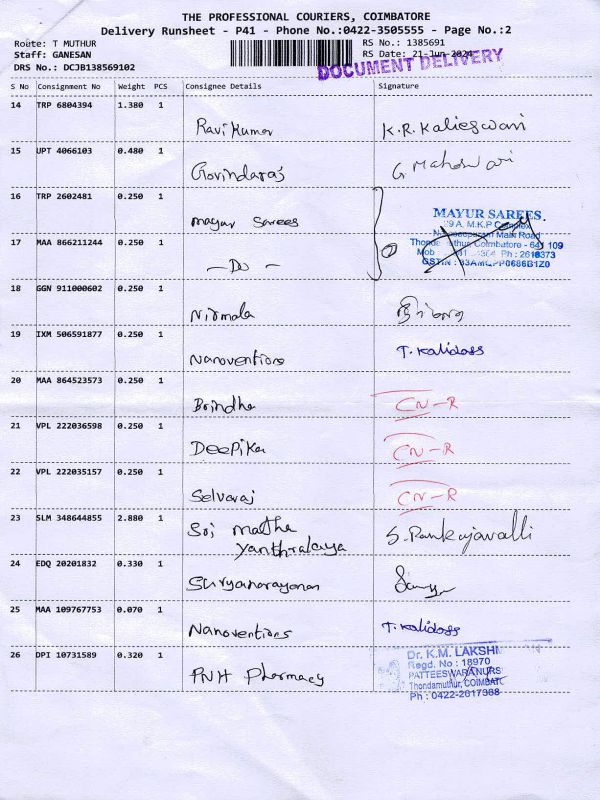 THE PROFESSIONAL COURIERS, COIMBATORE
Delivery Runsheet - P41 - Phone No.:0422-3505555 - Page No.:2
Route: T MUTHUR RS No.: 1385691
Staff: GANESAN RS Date: 21-Jun-2024
DRS No.: DCJB138569102 DOCUMENT DELIVERY
S No Consignment No Weight PCS Consignee Details Signature
14 TRP 6804394 1.380 1
Ravi Kumar K.R. Kalieswari
15 UPT 4066103 0.480 1
Govindaraj G Maheswari
16 TRP 2602481 0.250 1
mayur Sarees
MAYUR SAREES.
79 A, M.K.P Complex
Main Road
Coimbatore - 641 109
Ph : 2618373
17 MAA 866211244 0.250 1
- Do -
18 GGN 911000602 0.250 1
Nirmala
19 IXM 506591877 0.250 1
Nanoventions T. Kalidoss
20 MAA 864523573 0.250 1
Brindha CN-R
21 VPL 222036598 0.250 1
DeePika CN-R
22 VPL 222035157 0.250 1
Selvaraj CN-R
23 SLM 348644855 2.880 1
Sri Matha
Yanthralaya S. Pankajavalli
24 EDQ 20201832 0.330 1
Suryanarayanan
25 MAA 109767753 0.070 1
Nanoventions T. Kalidoss
26 DPI 10731589 0.320 1
PNH Pharmacy
Dr. K.M. LAKSHM
Regd. No : 18970
PATTEESWARA NURS
Thondamuthur, COIMBATO
Ph : 0422-2617368